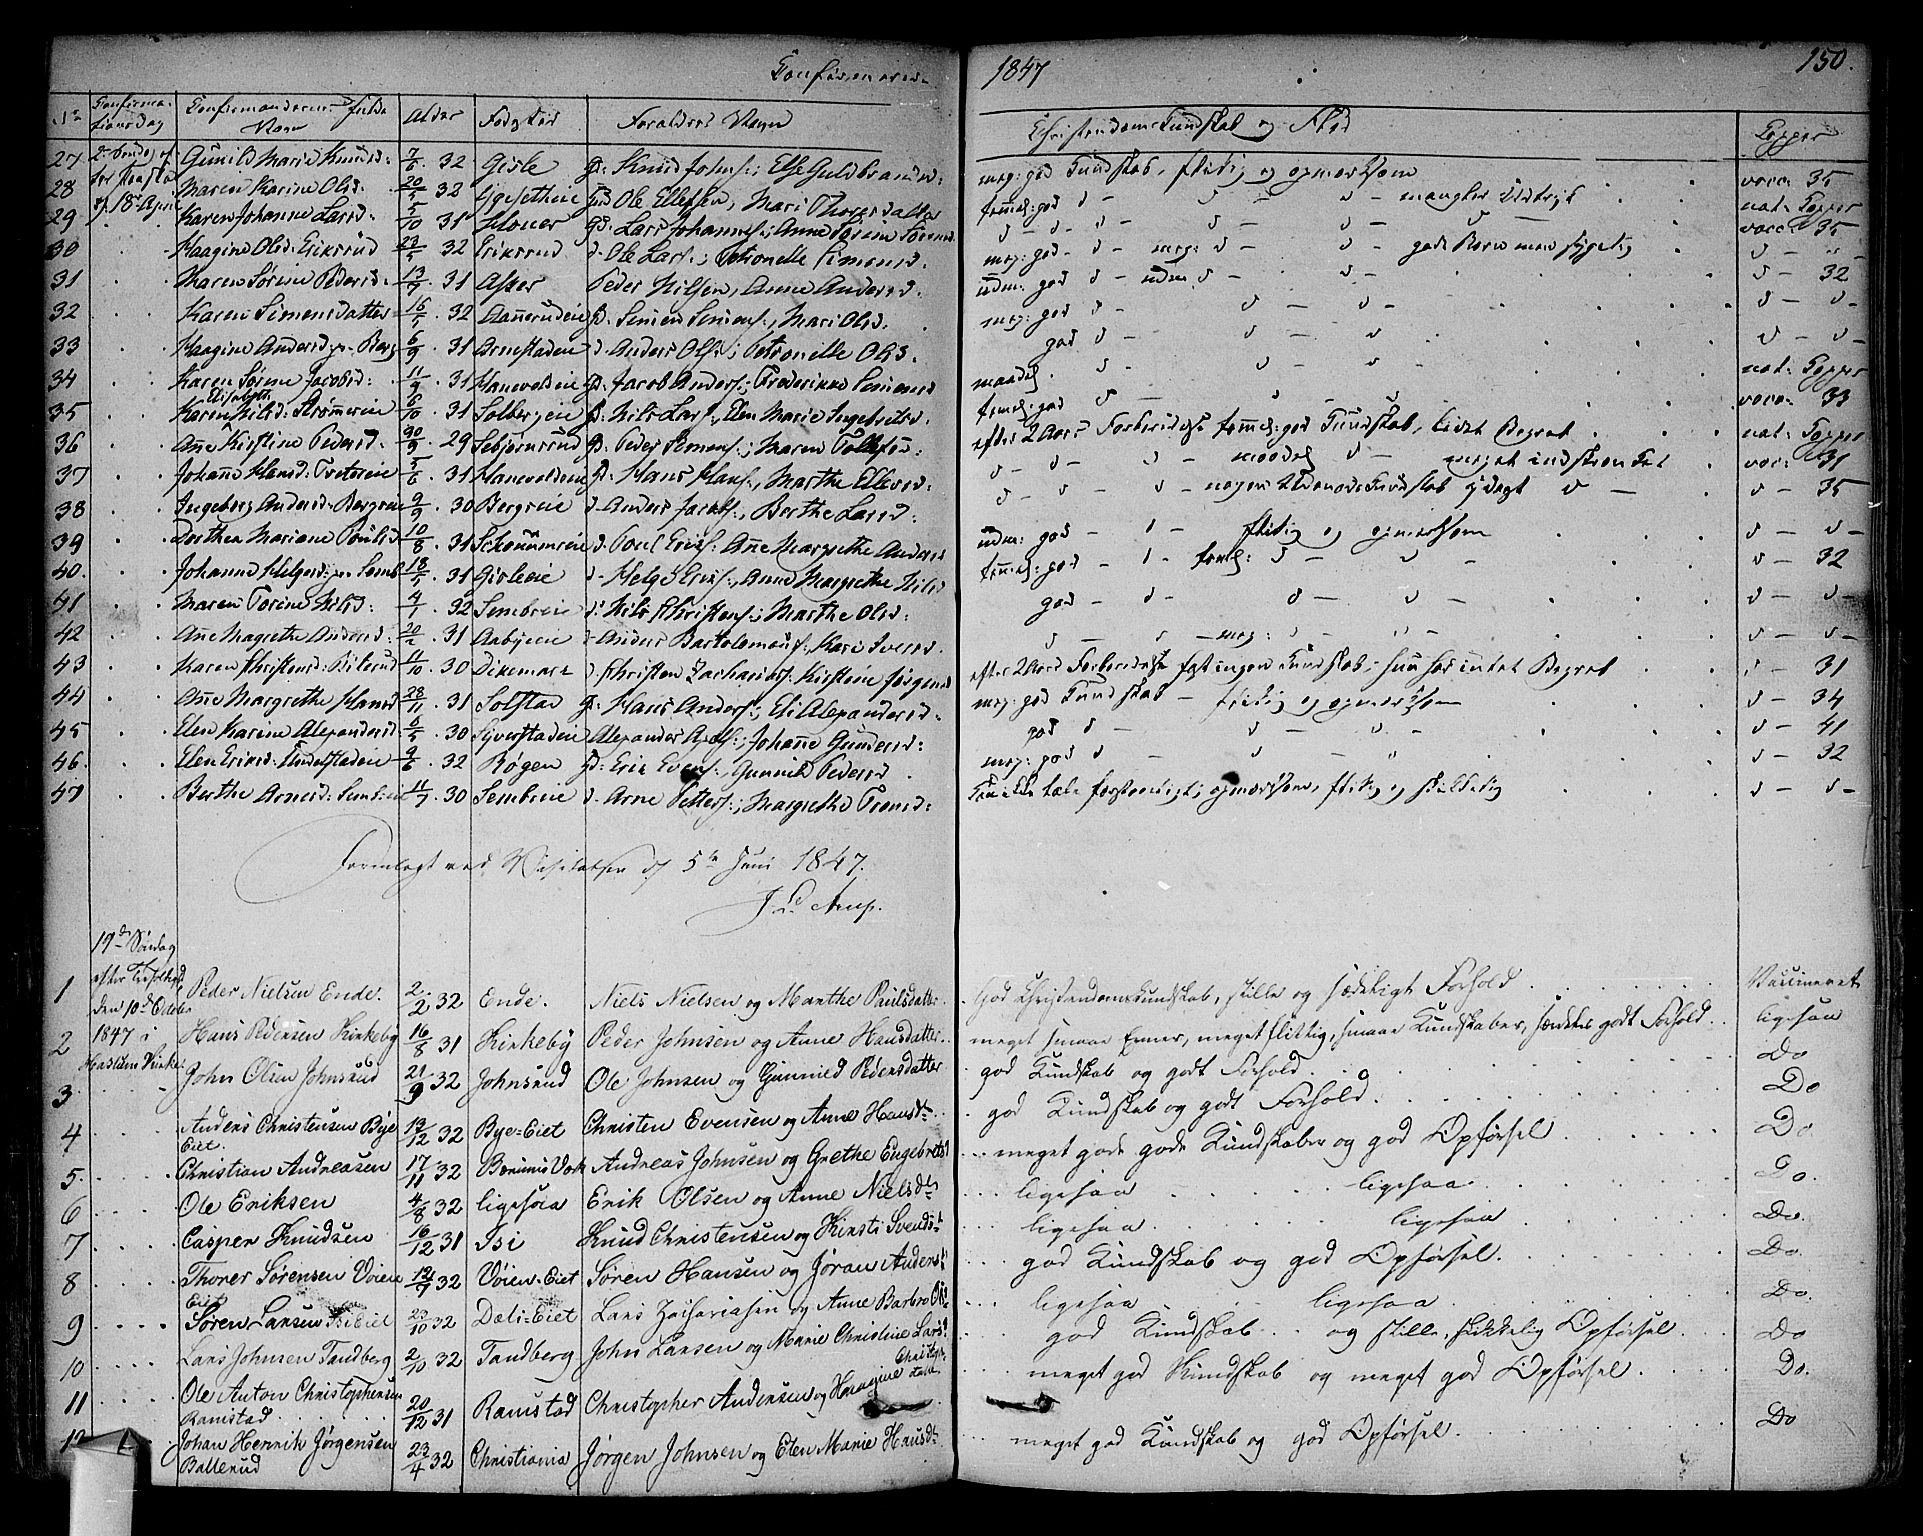 Confirmerede
1847
150.
No Confirmationsdag Confirmandernes fulde Navn Alder Fødested Forældres Navn Christendoms Kundskab og Flid Kopper
27 2. Søndag efter Paaske Gunild Marie Knudsd: 7/6 32 Gisle Gd: Knud Johns:; Else Guldbrandsd: meg: god Kundskab, flittig og opmærksom vacc: 35
28 d. 18de April Maren Karine Olsd: 20/1 32 Ole Ellefsen, Mari Thoresdatter temmel: god d - d - d - mangler Udtryk nat: Kopper
29 Karen Johanne Larsd: 5/10 31 Gd: Lars Johannes:; Anne d - d - d - d - vacc: 35
30 Haagine Olsd: Eriksrud 23/5 32 Eriksrud d - Ole Lars:; Petronelle Simensd. meg: god d - meg: d - d - gode Evner men d -
31 Maren Sørine Pedersd. 31 Asker Peder Nilsen, Anne Andersd. udm: god d - udm: d - d - d - 32
32 Karen Simensdatter 16/1 32 Simen Simens:, Mari Olsd. meg: god d - d - d - d - d -
33 Haagine Andersd. Berg 6/9 31 Arnestadeie d - Anders Ols:; Petronelle Olsd. god d - d - d - d - d -
34 Karen Sørine Jacobsd: 11/9 31 Hanevoldeie Gd: Jacob Anders:; Frederikke Simensd maadel: d - d - d nat: Kopper
35 Karen Elisabeth Nilsd: Strømereie 6/10 31 Solbergeie Nils Lars:, Elen Marie Ingebretsd. temel: god d - vacc: 33
36 Ane Kirstine Pedersd. 30/9 29 Sebjørnsrud Gd: Peder Simens:; Maren Tollefsd: efter 2 Aars Forberedelse temmel: god Kundskab, lidet Begreb nat: Kopper
37 Johane Hansd: Tvetereie 5/6 31 Hanevoldeie Gd: Hans Hans:, Marthe Ellevsd: d - d - d - maadel d - meget indskrænket vac: 31
38 Ingeborg Andersd: Bergseie 9/9 30 Bergseie d - Anders Jacobs:, Berthe Larsd: d - d - d - d - d - 35
39 Dorthea Mariane Poulsd 10/8 31 d. Poul Erics: Ane Margrethe Andersd udm: god d - flittig og opmærksom d - d -
40. Johanne Helgesd: Semb 18/5 31 Gisleeie d - Helge Erics:, Anne Margrethe Nilsd temmel: god d - temel: d - d - d - 32
41 Maren Torine Nilsd: 4/1 32 Sembseie d: Nils Christens:; Marthe Olsd. god d - d - d - d - d -
42 Ane Magrethe Andersd: 20/2 31 Aabyeie d - Anders Bartolomæus:, Kari Iversd. d - d - meg: d - d - d -
43 Karen Christensd: 11/10 30 Dikemark d. Christen Zacharias:, Kirstine Jørgensd efter 2 Aars Forberedelse fast ingen Kundskab, hun har intet Begreb d - 31
44 Ane Margrethe Hansd 28/11 31 Solstad Gd: Hans Anders:; Eli Alexandersd: meg: god Kundskab - flittig og opmærksom d - 34
45 Elen Karine Alexandersd: 6/5 30 Syverstadeie Alexander Axels:, Johane Gundersd: god d - d - d - d - 41
46. Elen Ericsd: Undelstadeie 9/6 32 Røgen Gd: Eric Evens:, Gunnild Pedersd. meg: god d - d - d - 32
47 Berthe Arnesd: Sembseie 11/7 30 Sembseie d - Arne Petters:, Margrethe Tronsd: Kan ikke tale forstaaeligt; opmærksom, flittig og skikkelig d - d -
Foremlagt ved Visitatsen d. 5te Juni 1847.
J. L. Arup.
19de Søndag efter Trefoldighed den 10de October 1847 i Haslum Kirke
1 Peder Nielsen Ende. 2/2 32 Ende. Niels Nielsen og Marthe Paulsdatter. God Christendomskundskab, stille og sædeligt Forhold Vaccineret
2 Hans Pedersen Kirkeby 16/8 31 Kirkeby Peder Johnsen og Anne Hansdatter. meget smaae Evner, meget flittig, smaae Kundskaber, særdeles godt Forhold. ligesaa
3 John Olsen Johnsrud 21/9 32 Johnsrud Ole Johnsen og Gunnild Pedersdatter god Kundskab og godt Forhold. Do
4 Anders Christensen Bye Eiet. 13/12 32 Bye-Eiet Christen Evensen og Anne Hansdr. god Kundskab og godt Forhold. Do
5. Christian Andreasen 17/11 32 Bærums Værk Andreas Johnsen og Grethe Engebretsd meget gode Kundskaber og god Opførsel Do.
6 Ole Eriksen 4/8 32 ligesaa Erik Olsen og Anne Nielsdr ligesaa ligesaa Do.
7 Casper Knudsen 16/12 31 Isi Knud Christensen og Kirsti Svendsdt ligesaa ligesaa Do.
8 Thorer Sørensen Vøien Eiet 32 Vøien-Eiet Søren Hansen og Jøran Andersdt god Kundskab og god Opførsel. Do.
9 Søren Larsen Isi Eiet 23/10 32 Dæli-Eiet Lars Zachariasen og Anne Barbro Olsdr ligesaa ligesaa Do.
10 Lars Johnsen Tandberg 2/10 32 Tandberg John Larsen og Marie Christine Larsd god Kundskab og stille, skikkelig Opførsel. Do
11 Ole Anton Christophersen Ramstad 20/12 31 Ramstad Christopher Andersen og Haagine Christophersdatter meget god Kundskab og meget god Opførsel. Do.
12 Johan Henrik Jørgensen Ballerud 23/4 32 Christiania Jørgen Johnsen og Elen Marie Hansdr. meget god Kundskab og god Opførsel. Do